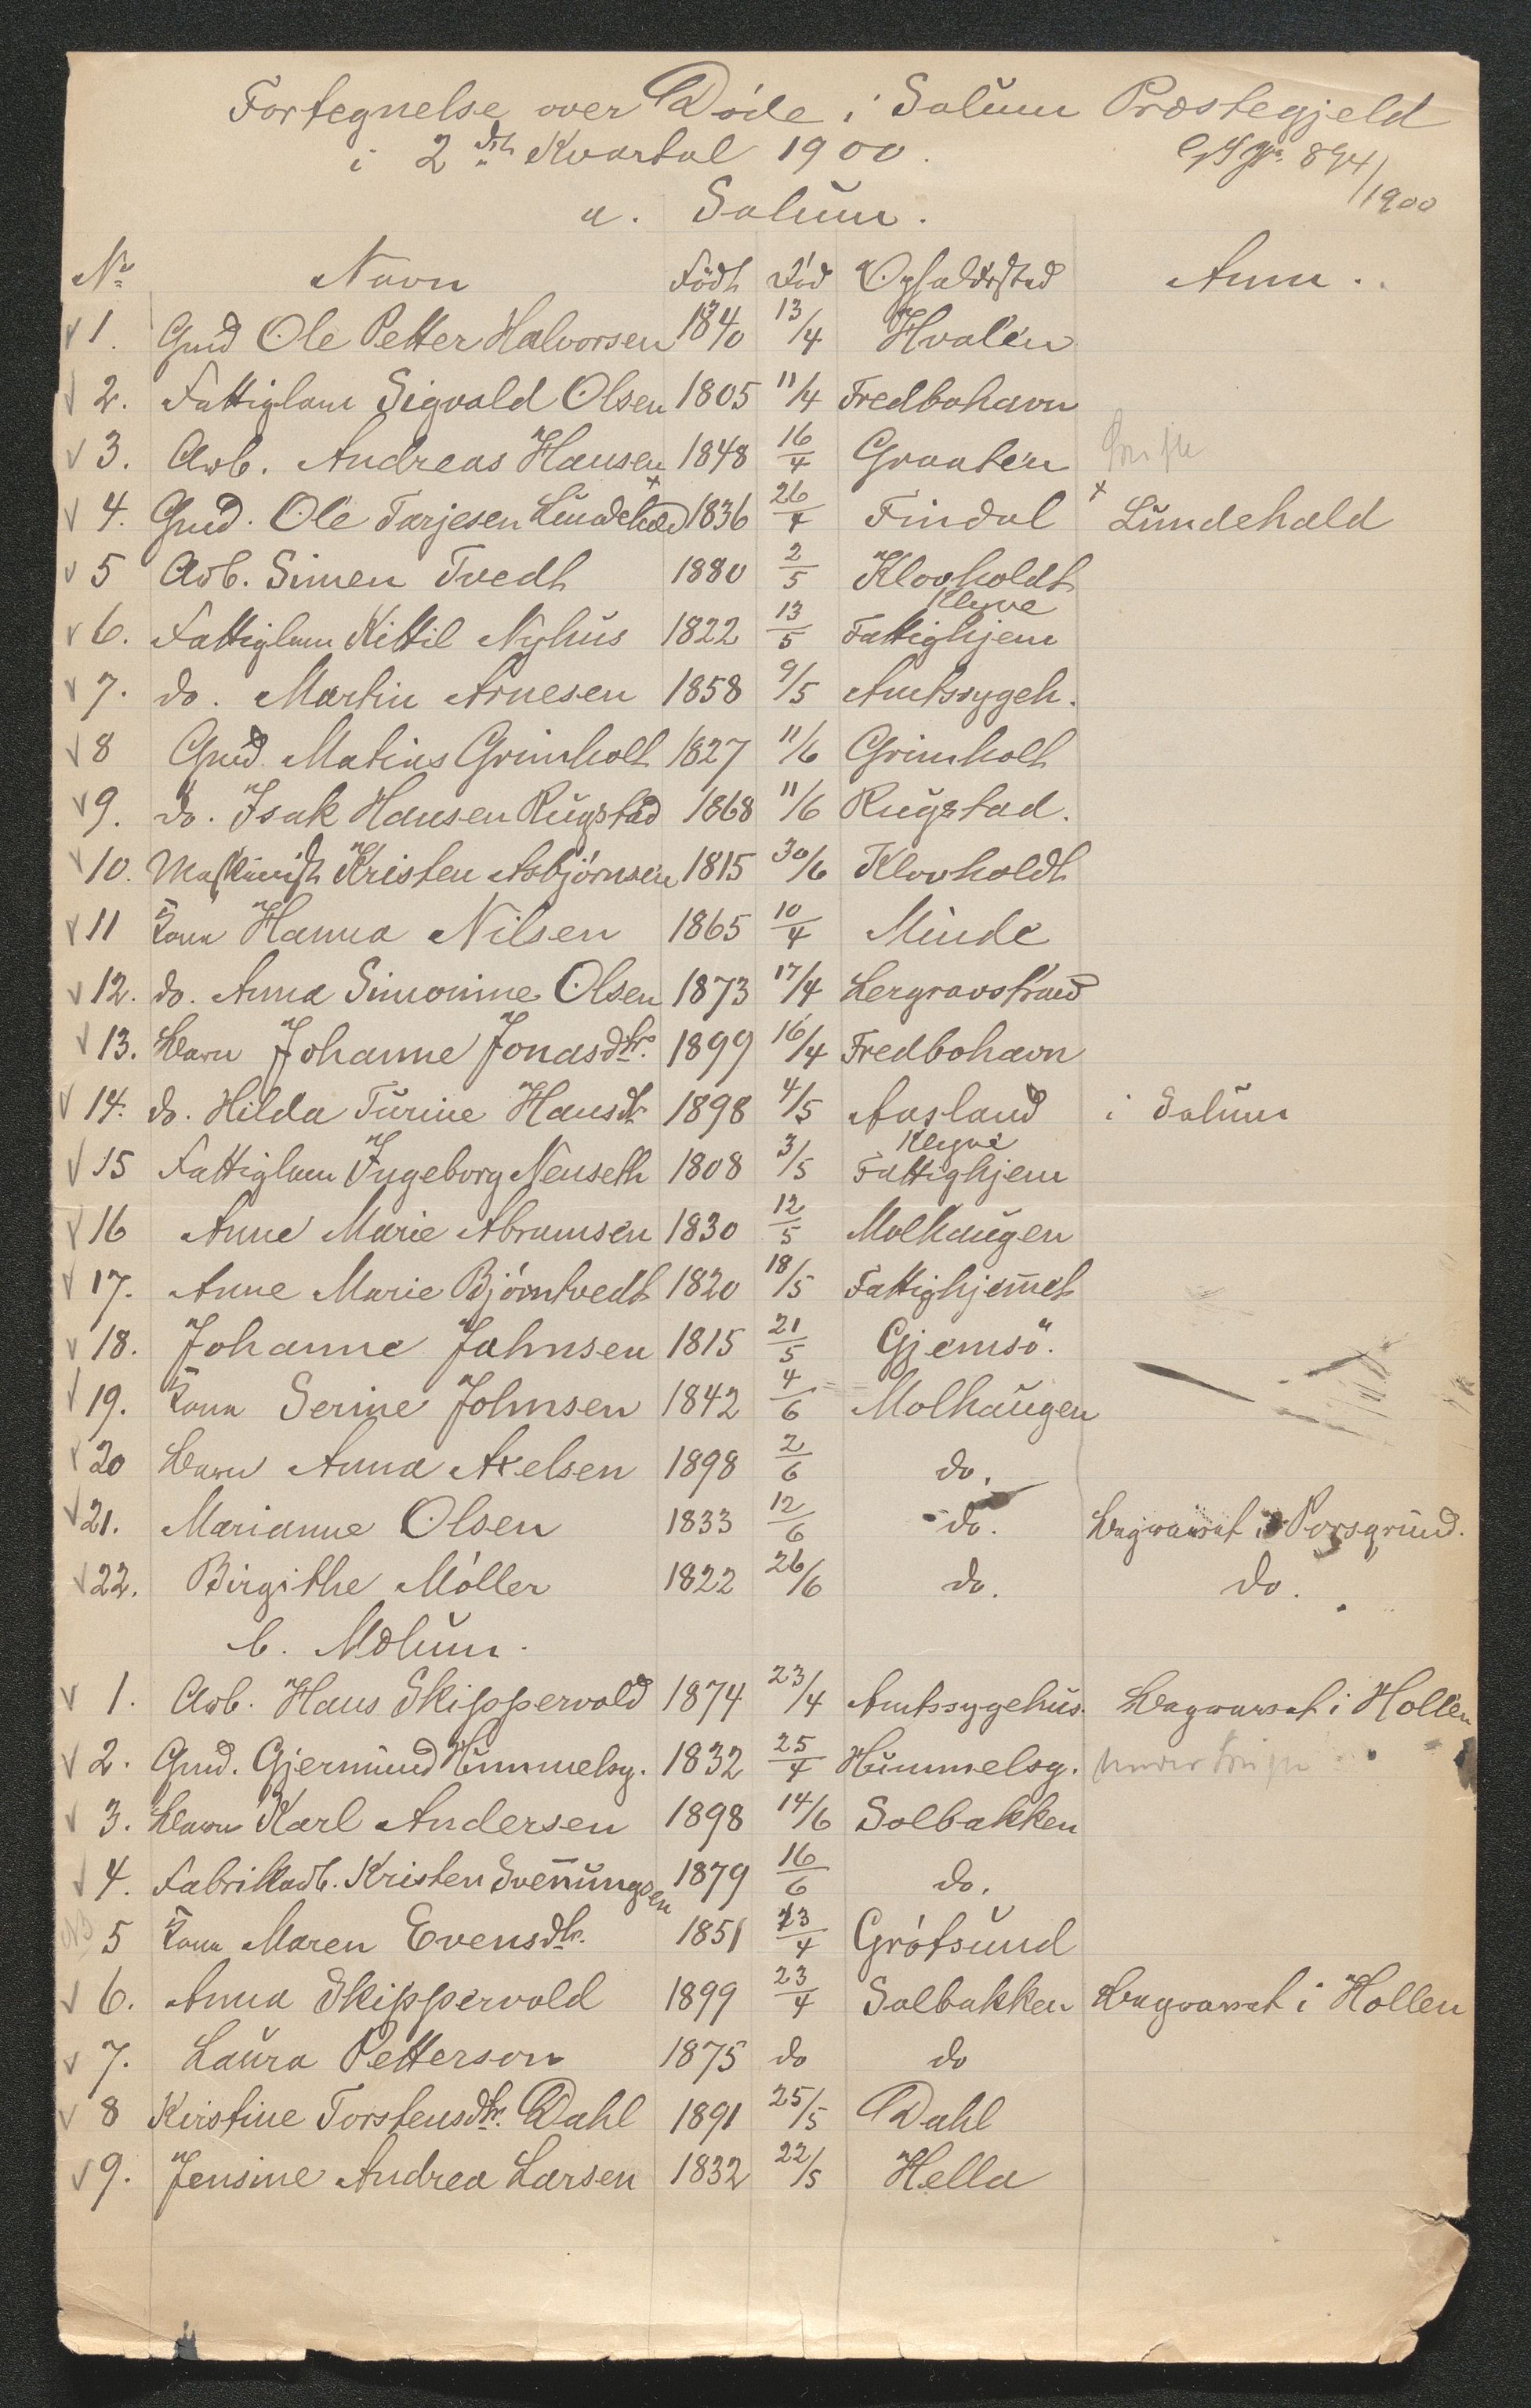 Fortegnelse over Døde i Solum Præstegjeld
i 2det Kvartal 1900.
894/1900
a. Solum.
No Navn Född Död Opholdssted Anm.
1. Gmd Ole Petter Halvorsen 1840 13/4 Hvalen
2. Fattiglem Sigvald Olsen 1805 11/4 Fredbohavn
3. Arb. Andreas Hansen 1848 16/4 Graaten
4. Gmd. Ole Tarjesen Lundehæld 1836 26/4 Findal x Lundehald
5 Arb. Simen Tvedt 1880 2/5 Klovholdt
6. Fattiglem Kittil Nyhus 1822 13/5 Klyve Fattighjem
7. do. Martin Arnesen 1858 9/5 Amtssygeh.
8 Gmd Matias Grimholt 1827 11/6 Grimholt
9. do. Isak Hansen Rugstad 1868 11/6 Rugstad.
10. Maskinist Kristen Asbjörnsen 1815 30/6 Klovholdt
11 Kone Hanna Nilsen 1865 10/4 Minde
12. do. Anna Simonine Olsen 1873 17/4 Lergravstrand
13. Barn Johanne Jonasdtr. 1899 16/4 Fredbohavn
14. do. Hilda Turine Hansdtr 1898 4/5 Aasland i Solum
15 Fattiglem Ingeborg Nenseth 1808 3/5 Klyve Fattighjem
16 Anne Marie Abramsen 1830 12/5 Molhaugen
17. Anne Marie Bjørntvedt 1820 18/5 Fattighjem̅et
18. Johanne Jahnsen 1815 21/5 Gjemsö.
19. Kone Serine Johnsen 1842 4/6 Molhaugen
20 Barn Anna Axelsen 1898 2/6 do.
21. Marianne Olsen 1833 12/6 do. Begravet i Porsgrund.
22. Birgithe Möller 1822 26/6 do. do.
b. Mælum.
1. Arb. Hans Skippervold 1874 23/4 Amtssygehus. Begravet i Hollen
2. Gmd. Gjermund Hummelsg. 1832 25/4 Hummelsg.
3. Barn Karl Andersen 1898 14/6 Solbakken
4. Fabrikarb. Kristen Sven̅ungsen 1879 16/6 do.
5 Kone Maren Evensdtr. 1851 23/4 Grötsund
6. Anna Skippervold 1899 23/4 Solbakken Begravet i Hollen
7. Laura Petterson 1875 do do
8 Kirstine Torstensdtr. Dahl 1891 25/5 Dahl
9. Jensine Andrea Larsen 1832 22/5 Hella